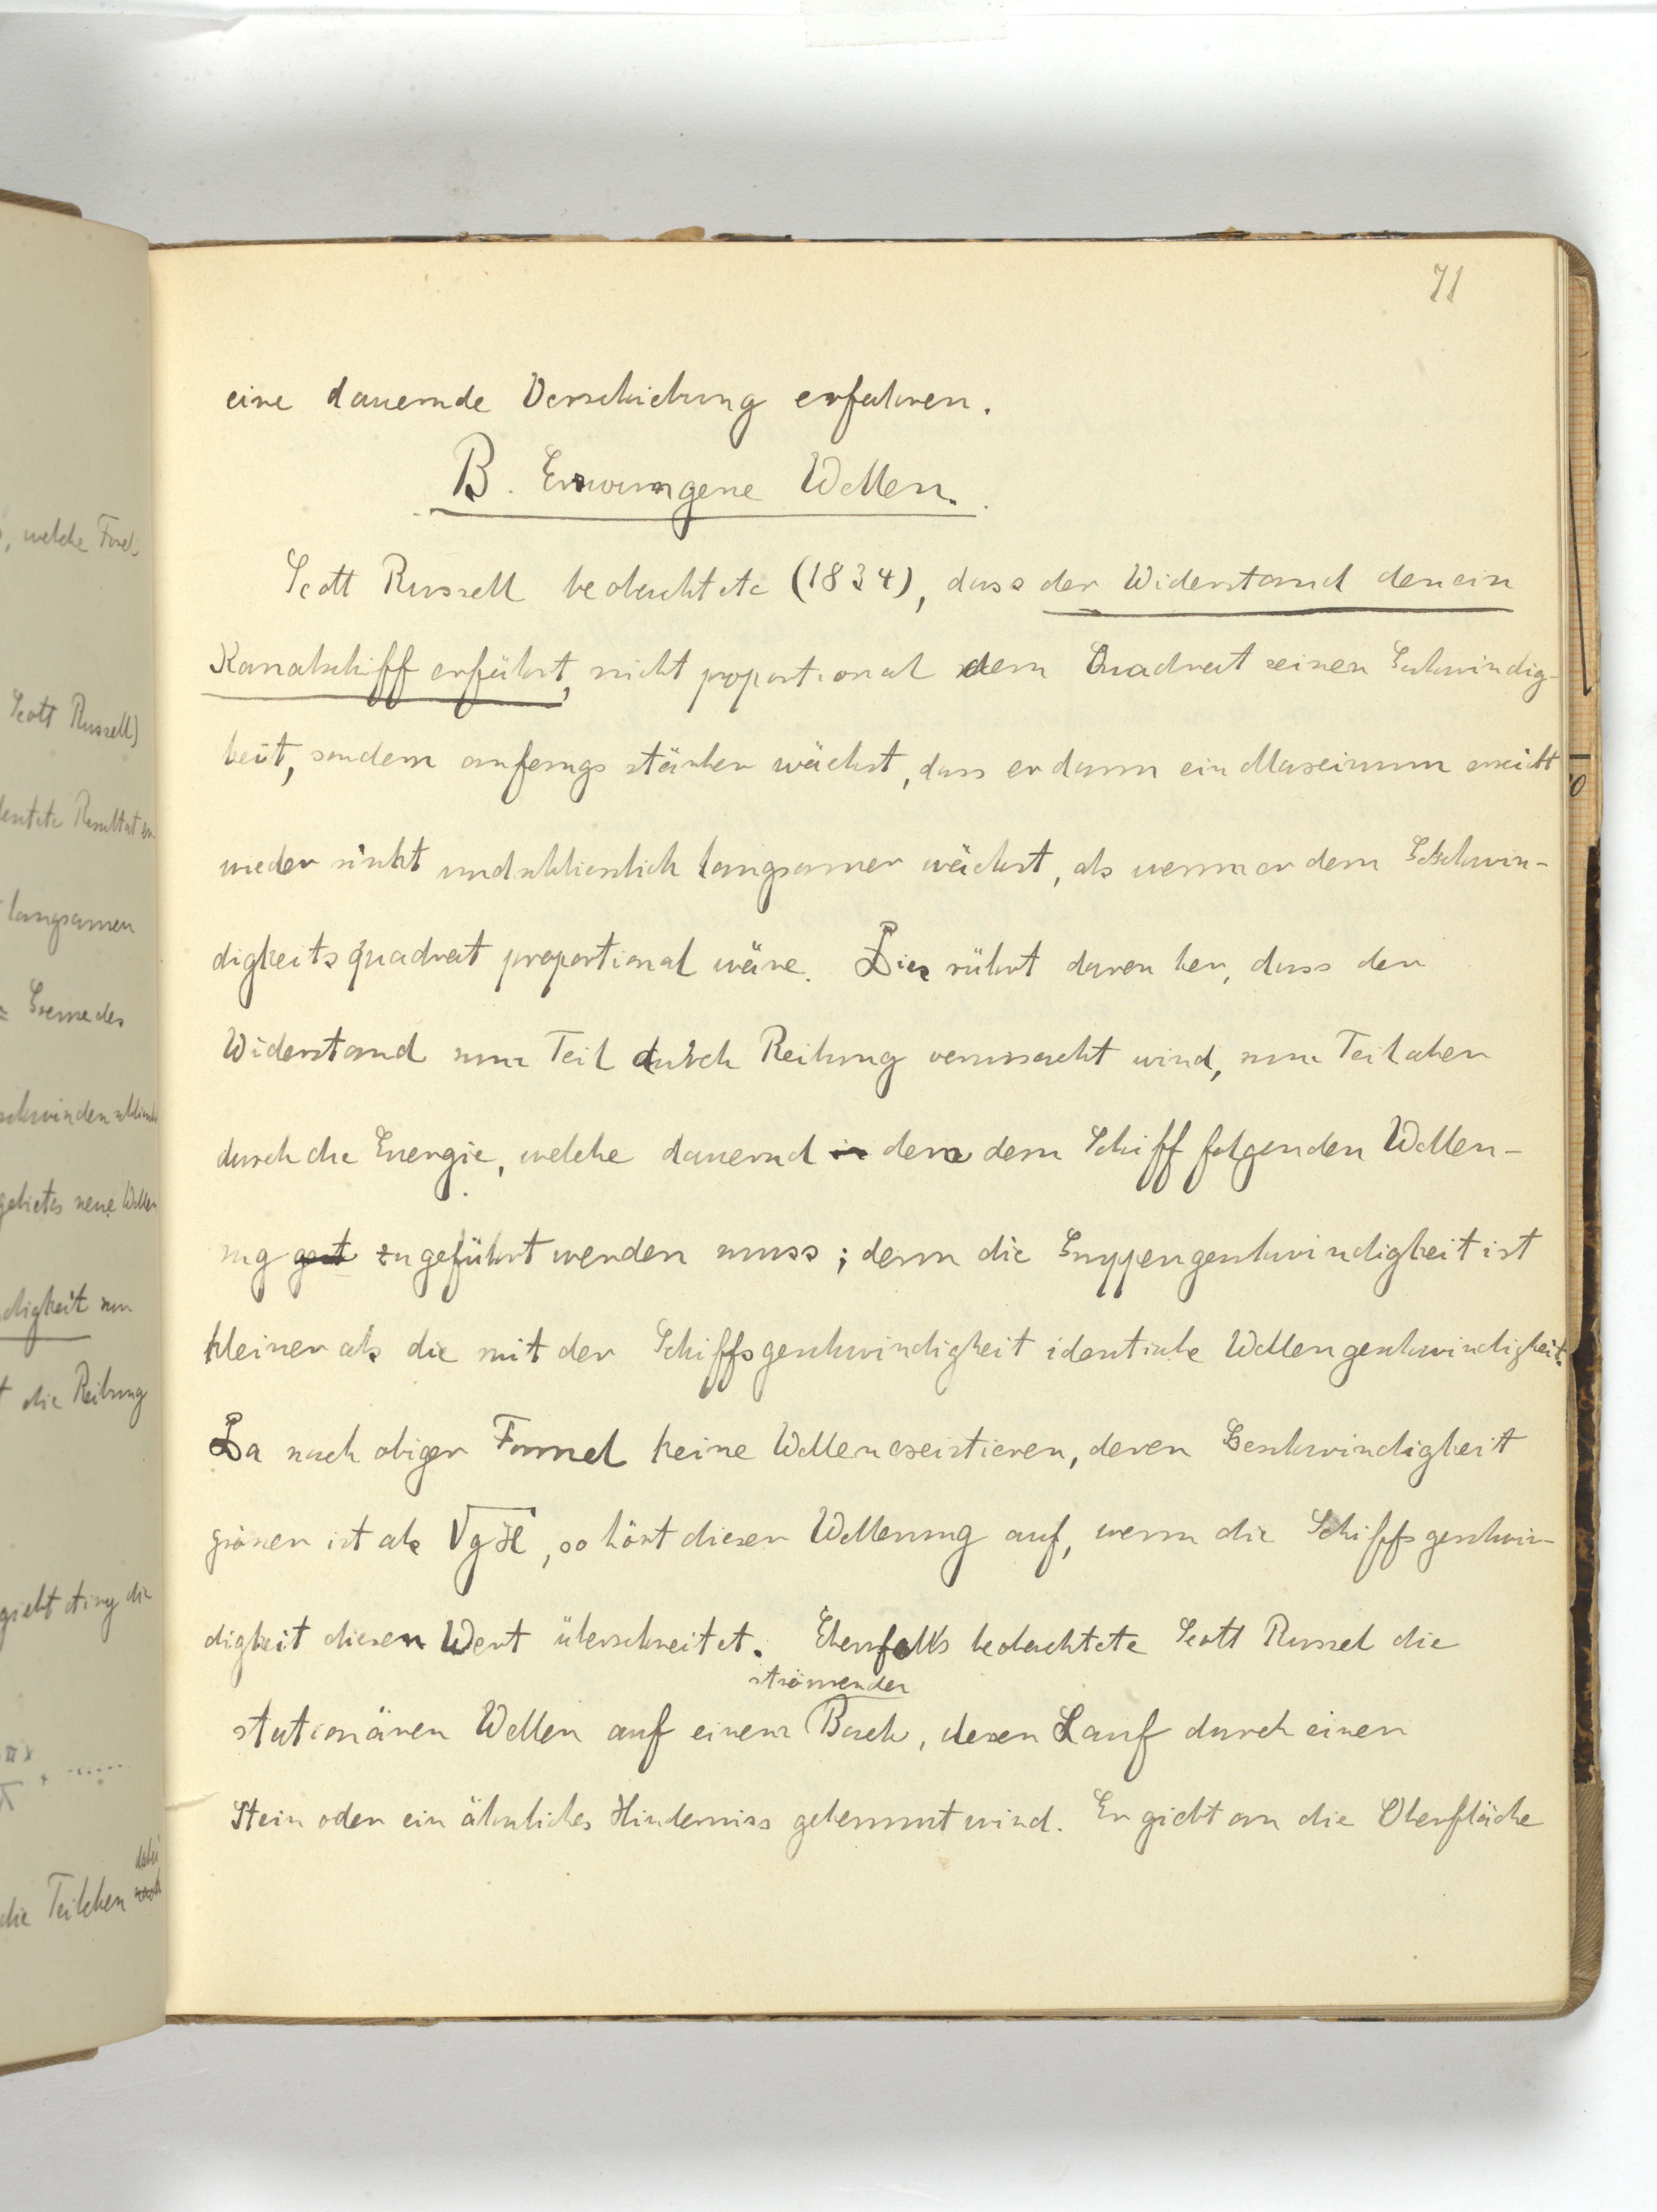 71
eine dauernde Verschiebung erfahren.
B. Erzwungene Wellen.
Scott Russell beobachtete (1834), dass der Widerstand den ein
Kanalschiff erfährt, nicht proportional dem Quadrat seiner Geschwindig-
keit, sondern anfangs stärker wächst, dass er dann ein Maximum erreicht
wieder sinkt und schliesslich langsamer wächst, als wenn er dem Geschwin-
digkeitsquadrat proportional wäre. Dies rührt davon her, dass der
Widerstand zum Teil durch Reibung verursacht wird, zum Teil aber
durch die Energie, welche dauernd in dem dem Schiff folgenden Wellen-
zug zugeführt werden muss; denn die Gruppengeschwindigkeit ist
kleiner als die mit der Schiffsgeschwindigkeit identische Wellengeschwindigkeit.
Da nach obiger Formel keine Wellen existieren, deren Geschwindigkeit
grösser ist als √gH, so hört dieser Wellenzug auf, wenn die Schiffsgeschwin-
digkeit diesen Wert überschreitet. Ebenfalls beobachtete Scott Russel die
strömender
stationären Wellen auf einem Bach, dessen Lauf durch einen
Stein oder ein ähnliches Hinderniss gehemmt wird. Er giebt an die Oberfläche
, welche
Scott Russell)
langsamen
digkeit
die Reibung
gebietes neue Wellen
die Teilchen